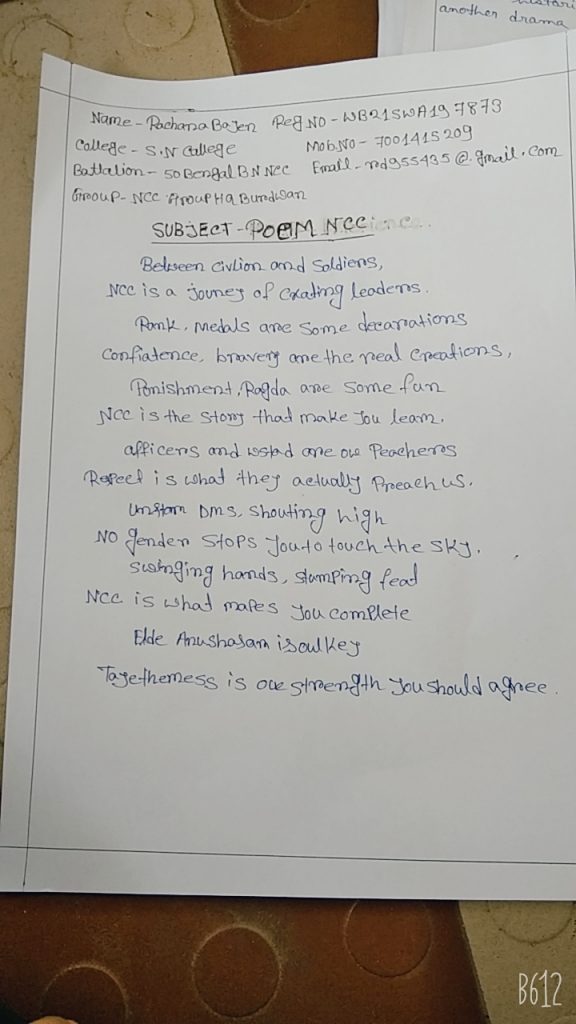 another drama
Name - Rachana Bajen Reg NO - WB21SWA197873
College - S.N College Mob.NO - 7001415209
Battalion - 50 Bengal BN NCC Email - rd955435@gmail.com
Group - NCC Group HQ Burdwan
SUBJECT - POEM NCC
Between Civlion and Soldiers,
NCC is a jouney of Creating leaders.
Rank, medals are some decarations
Confiatence, bravery are the real Creations,
Ponishment, Ragda are some fun
NCC is the story that make you learn.
afficers and are our Peachers
Respect is what they actually Preach us.
Uniform Dms, shouting high
NO gender stops you to touch the sky.
Swinging hands, stumping feat
NCC is what makes you complete
Ekde Anushasan is oul key
Tagetherness is our strength you should agree.
B612